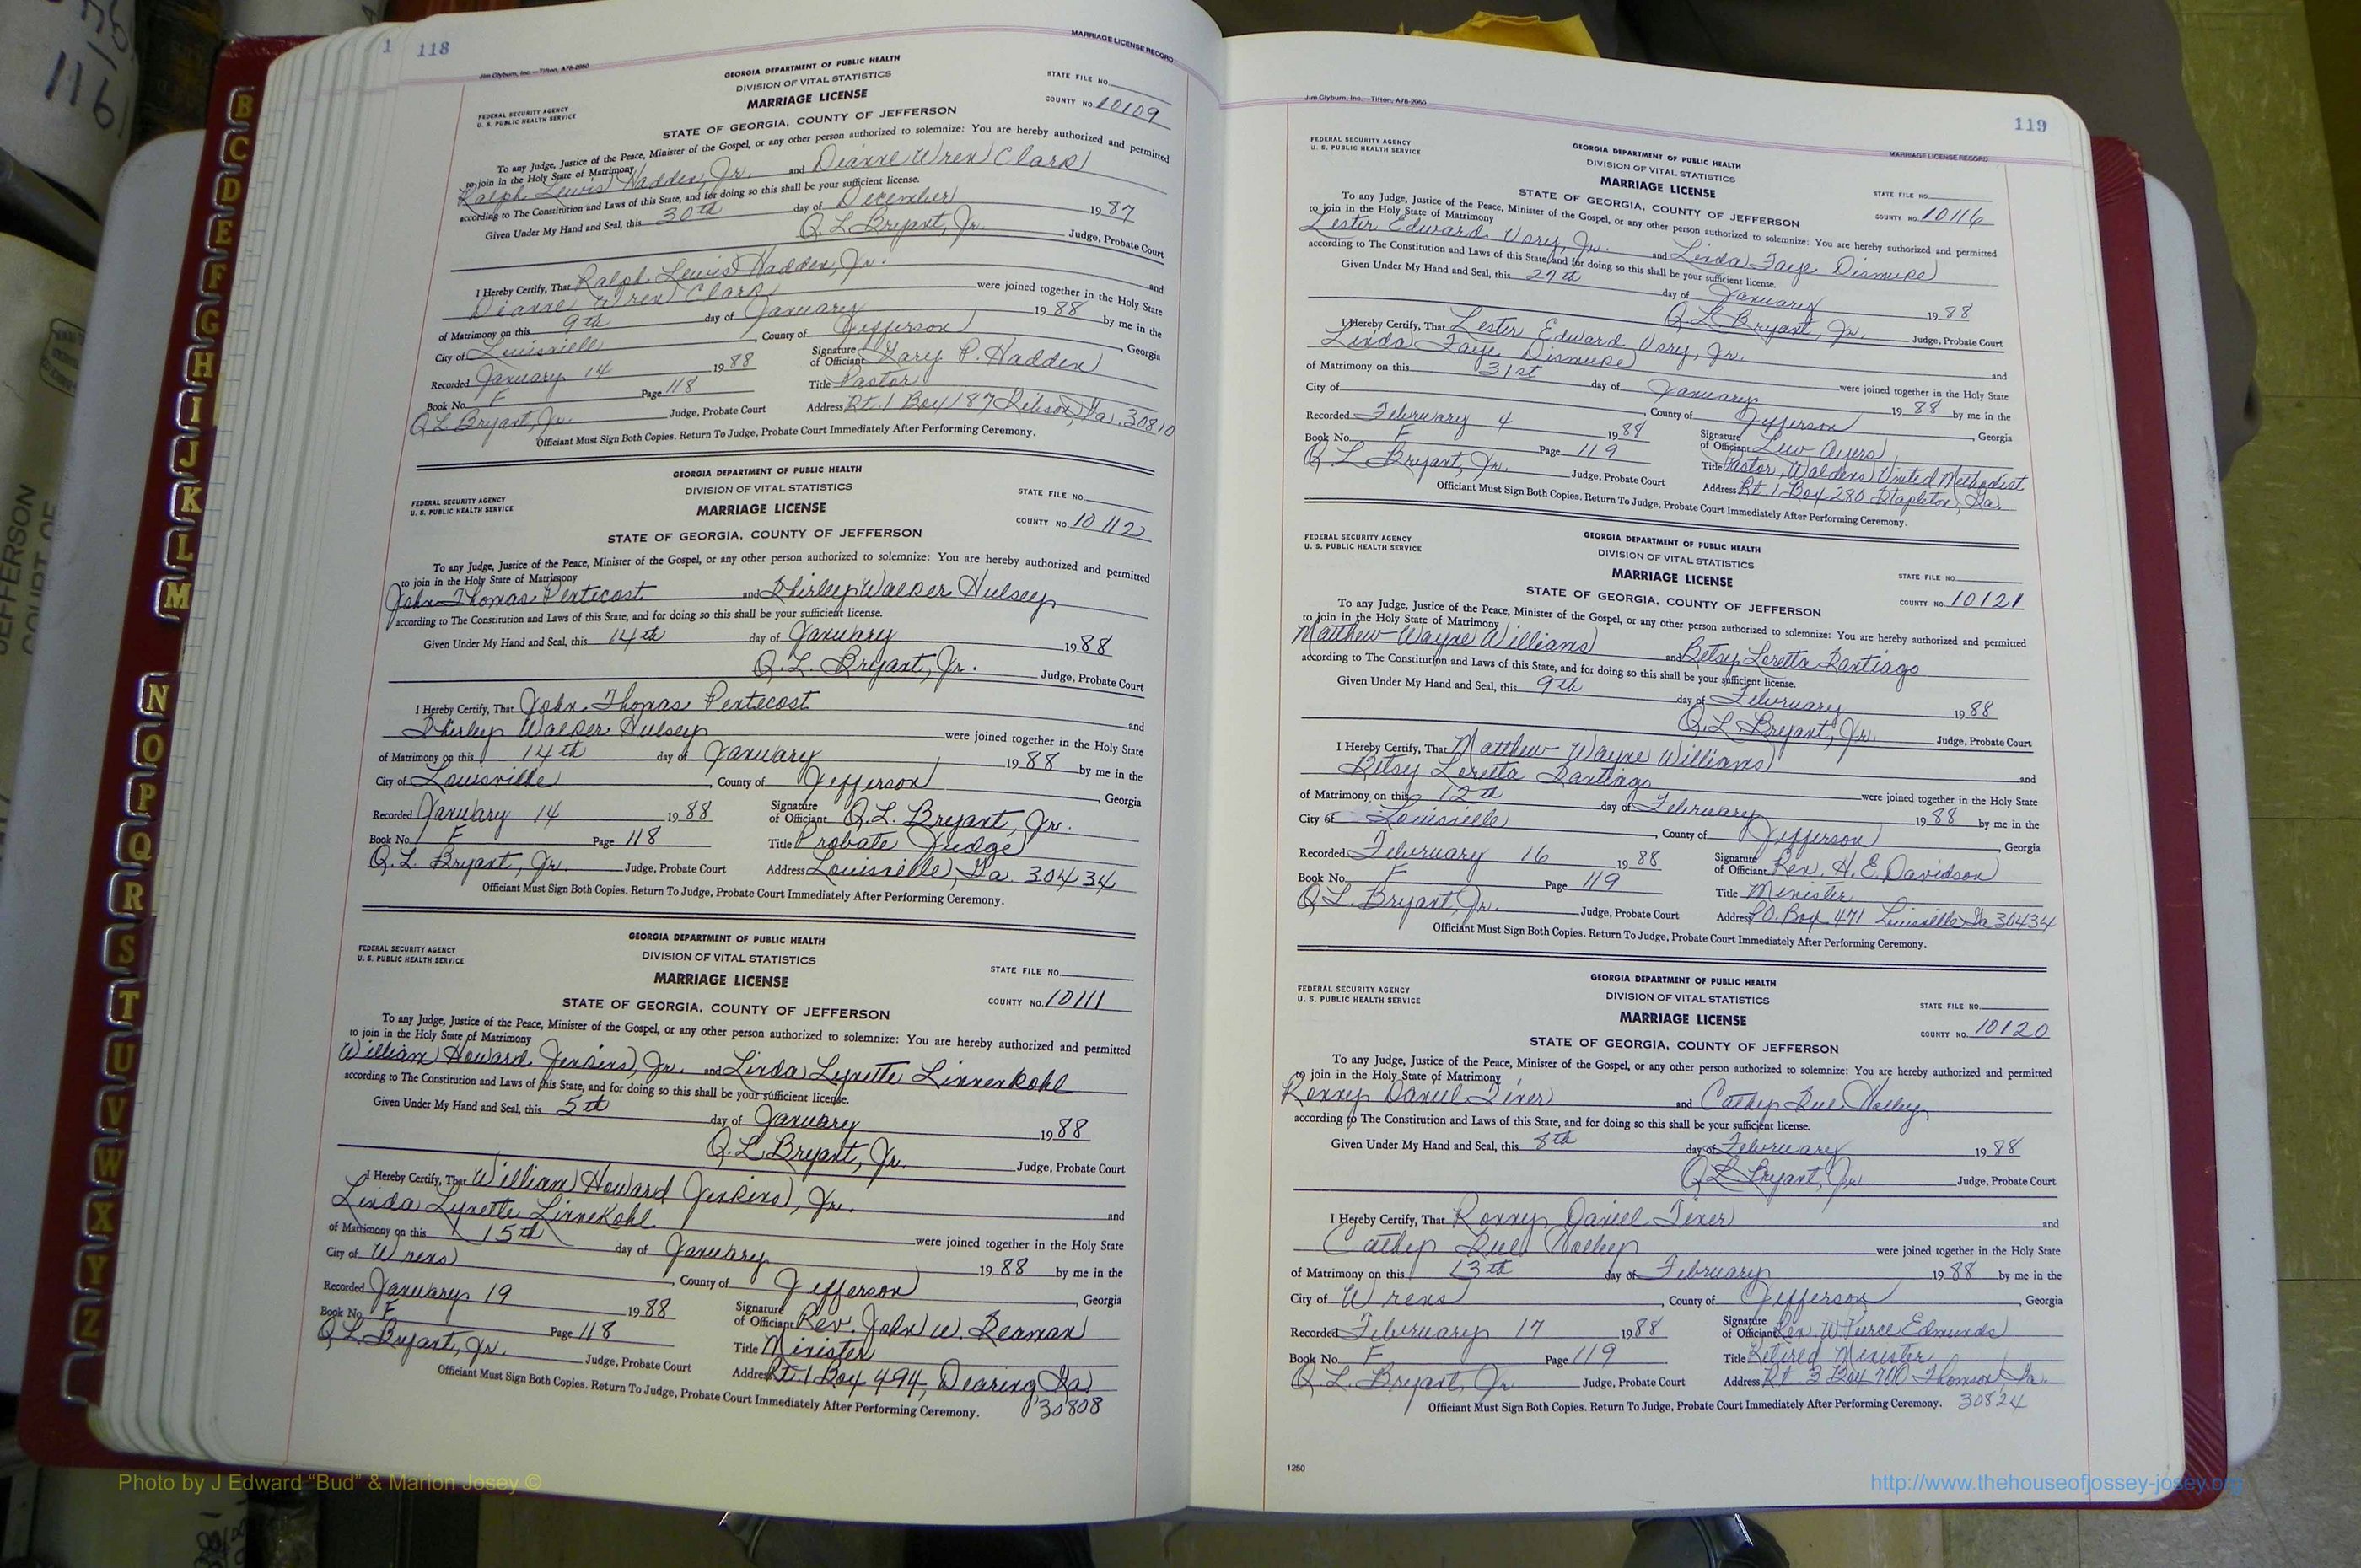 1 118
MARRIAGE LICENSE RECORD
Jim Clyburn, Inc.—Tifton, A78-2950
GEORGIA DEPARTMENT OF PUBLIC HEALTH
DIVISION OF VITAL STATISTICS
FEDERAL SECURITY AGENCY
U. S. PUBLIC HEALTH SERVICE
MARRIAGE LICENSE
STATE FILE NO.
COUNTY NO. 10109
STATE OF GEORGIA, COUNTY OF JEFFERSON
To any Judge, Justice of the Peace, Minister of the Gospel, or any other person authorized to solemnize: You are hereby authorized and permitted
to join in the Holy State of Matrimony
Ralph Lewis Hadden, Jr. and Dianne Wren Clark
according to The Constitution and Laws of this State, and for doing so this shall be your sufficient license.
Given Under My Hand and Seal, this 30th day of December 1987
Q.L. Bryant, Jr. Judge, Probate Court
I Hereby Certify, That Ralph Lewis Hadden, Jr. and
Dianne Wren Clark were joined together in the Holy State
of Matrimony on this 9th day of January 1988 by me in the
City of Louisville, County of Jefferson, Georgia
Recorded January 14 1988 Signature of Officiant Gary P. Hadden
Book No. F Page 118 Title Pastor
Q.L. Bryant, Jr. Judge, Probate Court Address Rt. 1 Box 187 Gibson, Ga. 30810
Officiant Must Sign Both Copies. Return To Judge, Probate Court Immediately After Performing Ceremony.
GEORGIA DEPARTMENT OF PUBLIC HEALTH
DIVISION OF VITAL STATISTICS
FEDERAL SECURITY AGENCY
U. S. PUBLIC HEALTH SERVICE
MARRIAGE LICENSE
STATE FILE NO.
COUNTY NO. 10112
STATE OF GEORGIA, COUNTY OF JEFFERSON
To any Judge, Justice of the Peace, Minister of the Gospel, or any other person authorized to solemnize: You are hereby authorized and permitted
to join in the Holy State of Matrimony
John Thomas Pentecost and Shirley Walker Hulsey
according to The Constitution and Laws of this State, and for doing so this shall be your sufficient license.
Given Under My Hand and Seal, this 14th day of January 1988
Q.L. Bryant, Jr. Judge, Probate Court
I Hereby Certify, That John Thomas Pentecost and
Shirley Walker Hulsey were joined together in the Holy State
of Matrimony on this 14th day of January 1988 by me in the
City of Louisville, County of Jefferson, Georgia
Recorded January 14 1988 Signature of Officiant Q.L. Bryant, Jr.
Book No. F Page 118 Title Probate Judge
Q.L. Bryant, Jr. Judge, Probate Court Address Louisville, Ga. 30434
Officiant Must Sign Both Copies. Return To Judge, Probate Court Immediately After Performing Ceremony.
GEORGIA DEPARTMENT OF PUBLIC HEALTH
DIVISION OF VITAL STATISTICS
FEDERAL SECURITY AGENCY
U. S. PUBLIC HEALTH SERVICE
MARRIAGE LICENSE
STATE FILE NO.
COUNTY NO. 10111
STATE OF GEORGIA, COUNTY OF JEFFERSON
To any Judge, Justice of the Peace, Minister of the Gospel, or any other person authorized to solemnize: You are hereby authorized and permitted
to join in the Holy State of Matrimony
William Howard Jenkins, Jr. and Linda Lynette Linnenkohl
according to The Constitution and Laws of this State, and for doing so this shall be your sufficient license.
Given Under My Hand and Seal, this 5th day of January 1988
Q.L. Bryant, Jr. Judge, Probate Court
I Hereby Certify, That William Howard Jenkins, Jr. and
Linda Lynette Linnekohl were joined together in the Holy State
of Matrimony on this 15th day of January 1988 by me in the
City of Wrens, County of Jefferson, Georgia
Recorded January 19 1988 Signature of Officiant Rev. John W. Seaman
Book No. F Page 118 Title Minister
Q.L. Bryant, Jr. Judge, Probate Court Address Rt. 1 Box 494, Dearing, Ga.
30808
Officiant Must Sign Both Copies. Return To Judge, Probate Court Immediately After Performing Ceremony.
119
Jim Clyburn, Inc.—Tifton, A78-2950
MARRIAGE LICENSE RECORD
FEDERAL SECURITY AGENCY
U. S. PUBLIC HEALTH SERVICE
GEORGIA DEPARTMENT OF PUBLIC HEALTH
DIVISION OF VITAL STATISTICS
MARRIAGE LICENSE
STATE FILE NO.
COUNTY NO. 10116
STATE OF GEORGIA, COUNTY OF JEFFERSON
To any Judge, Justice of the Peace, Minister of the Gospel, or any other person authorized to solemnize: You are hereby authorized and permitted
to join in the Holy State of Matrimony
Lester Edward Vory, Jr. and Linda Faye Dismuke
according to The Constitution and Laws of this State, and for doing so this shall be your sufficient license.
Given Under My Hand and Seal, this 27th day of January 1988
Q.L. Bryant, Jr. Judge, Probate Court
I Hereby Certify, That Lester Edward Vory, Jr. and
Linda Faye Dismuke were joined together in the Holy State
of Matrimony on this 31st day of January 1988 by me in the
City of , County of Jefferson, Georgia
Recorded February 4 1988 Signature of Officiant Lew Ayers
Book No. F Page 119 Title Pastor, Waldens United Methodist
Q.L. Bryant, Jr. Judge, Probate Court Address Rt. 1 Box 280 Stapleton, Ga.
Officiant Must Sign Both Copies. Return To Judge, Probate Court Immediately After Performing Ceremony.
FEDERAL SECURITY AGENCY
U. S. PUBLIC HEALTH SERVICE
GEORGIA DEPARTMENT OF PUBLIC HEALTH
DIVISION OF VITAL STATISTICS
MARRIAGE LICENSE
STATE FILE NO.
COUNTY NO. 10121
STATE OF GEORGIA, COUNTY OF JEFFERSON
To any Judge, Justice of the Peace, Minister of the Gospel, or any other person authorized to solemnize: You are hereby authorized and permitted
to join in the Holy State of Matrimony
Matthew Wayne Williams and Betsy Loretta Santiago
according to The Constitution and Laws of this State, and for doing so this shall be your sufficient license.
Given Under My Hand and Seal, this 9th day of February 1988
Q.L. Bryant, Jr. Judge, Probate Court
I Hereby Certify, That Matthew Wayne Williams and
Betsy Loretta Santiago were joined together in the Holy State
of Matrimony on this 12th day of February 1988 by me in the
City of Louisville, County of Jefferson, Georgia
Recorded February 16 1988 Signature of Officiant Rev. H.E. Davidson
Book No. F Page 119 Title Minister
Q.L. Bryant, Jr. Judge, Probate Court Address P.O. Box 471 Louisville Ga 30434
Officiant Must Sign Both Copies. Return To Judge, Probate Court Immediately After Performing Ceremony.
FEDERAL SECURITY AGENCY
U. S. PUBLIC HEALTH SERVICE
GEORGIA DEPARTMENT OF PUBLIC HEALTH
DIVISION OF VITAL STATISTICS
MARRIAGE LICENSE
STATE FILE NO.
COUNTY NO. 10120
STATE OF GEORGIA, COUNTY OF JEFFERSON
To any Judge, Justice of the Peace, Minister of the Gospel, or any other person authorized to solemnize: You are hereby authorized and permitted
to join in the Holy State of Matrimony
Ronny Daniel and Cathy Sue Holley
according to The Constitution and Laws of this State, and for doing so this shall be your sufficient license.
Given Under My Hand and Seal, this 8th day of February 1988
Q L Bryant, Jr Judge, Probate Court
I Hereby Certify, That Ronny Daniel and
Cathy Sue Holley were joined together in the Holy State
of Matrimony on this 13th day of February 1988 by me in the
City of Wrens, County of Jefferson, Georgia
Recorded February 17 1988 Signature of Officiant Rev. W. Pierce Edmunds
Book No. F Page 119 Title Retired Minister
Q L. Bryant, Jr Judge, Probate Court Address Rt. 3 Box 700 Thomson, Ga.
Officiant Must Sign Both Copies. Return To Judge, Probate Court Immediately After Performing Ceremony. 30824
1250
B
C
D
E
F
G
H
I
J
K
L
M
N
O
P
Q
R
S
T
U
V
W
X
Y
Z
JEFFERSON
COURT OF
Photo by J Edward “Bud” & Marion Josey ©
http://www.thehouseofjossey-josey.org